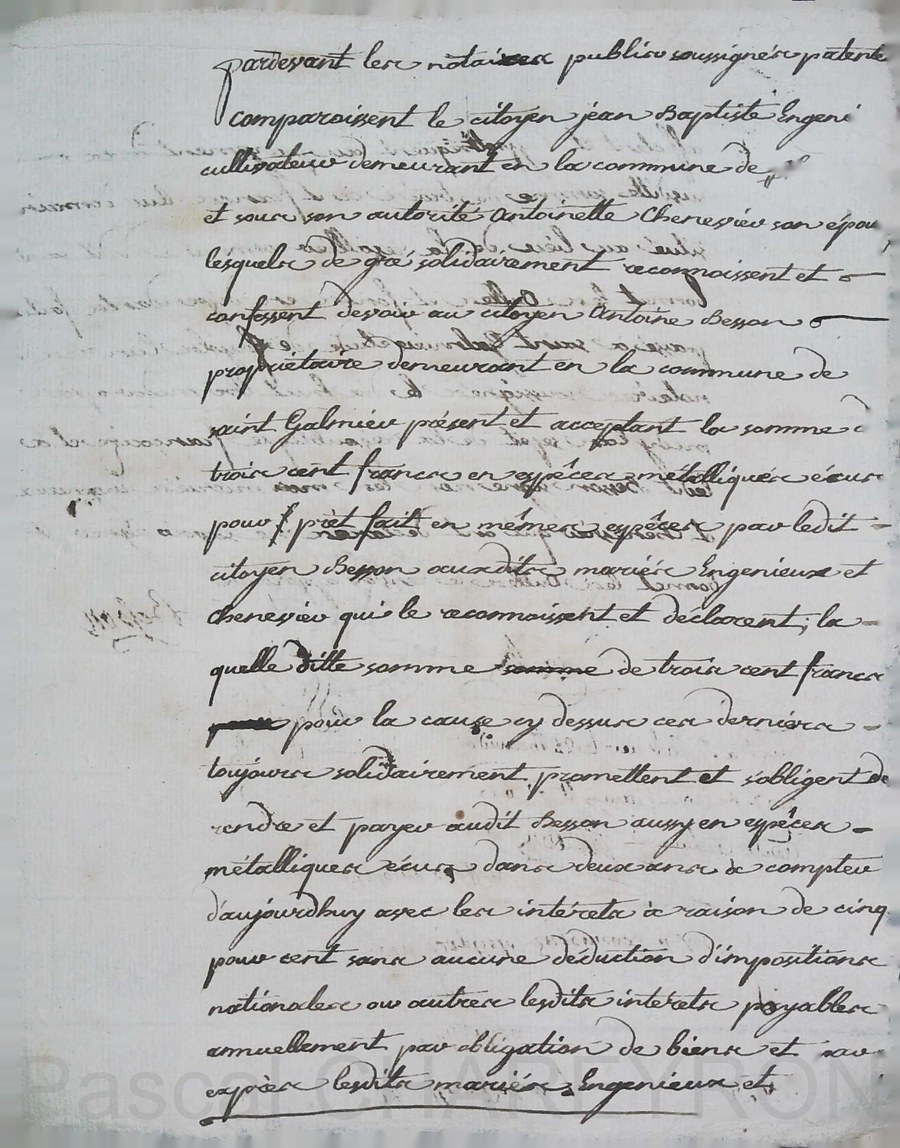 pardevant les notaires publics soussignés patenté
comparoissent le citoyen jean Baptiste Engeni
cultivateur demeurant en la commune de
et sous son autorité Antoinette Chenevier son épou
lesquels de gré solidairement reconnoissent et
confessent devoir au citoyen Antoine Besson
propriétaire demeurant en la commune de
saint Galmier présent et acceptant la somme d
trois cent francs en espéces métalliques écus
pour prêt fait en mêmes espéces par ledit
citoyen Besson auxdits mariés Engenieux et
Chenevier qui le reconnoissent et déclarent; la
quelle ditte somme somme de trois cent francs
pour la cause cy dessus ces derniers
toujours solidairement promettent et s'obligent de
rendre et payer audit Besson aussy en espéces
métalliques écus dans deux ans à compter
d'aujourdhuy avec les intérets à raison de cinq
pour cent sans aucune déduction d'impositions
nationales ou autres lesdits intérets payables
annuellement par obligation de biens et par
exprès lesdits mariés Engenieux et
Besson
Pascal CHAREYRON